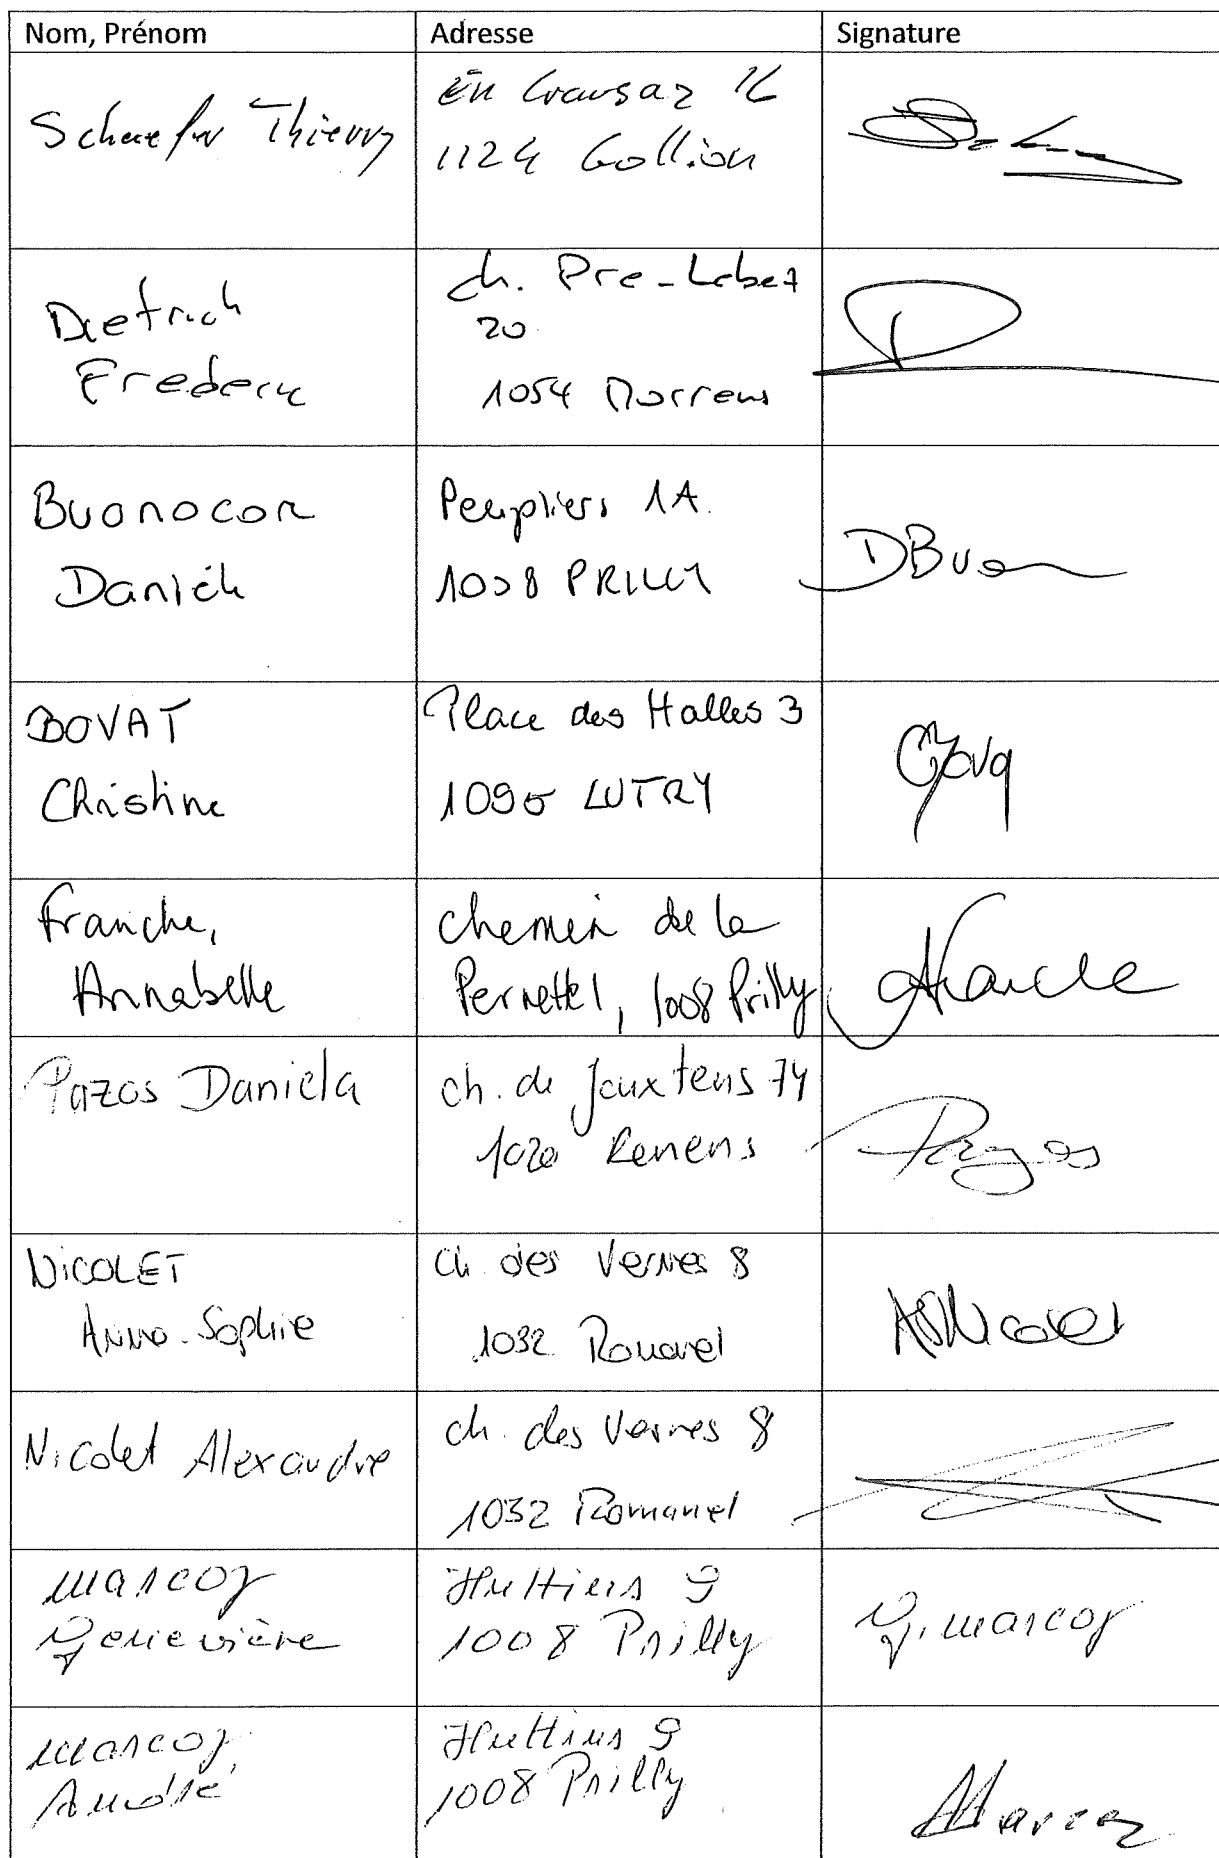 Nom, Prénom
Adresse
Signature
Schaefer Thierry
En Crausaz 16
1124 Gollion
Dietrich
Frederic
ch. Pre-Lebet
20
1054 Morrens
Buonocor
Daniele
Peupliers 1A
1008 PRILLY
DBuo
BOVAT
Christine
Place des Halles 3
1095 LUTRY
Franche,
Annabelle
chemin de la
Pernette 1, 1008 Prilly
AFranche
Pazos Daniela
ch. de Jouxtens 74
1020 Renens
Pazos
NICOLET
Anne-Sophie
Ch des Vernes 8
1032 Romanel
ASNicolet
Nicolet Alexandre
ch. des Vernes 8
1032 Romanel
Marcoz
Geneviève
Huttins 9
1008 Prilly
G. Marcoz
Marcoz
André
Huttins 9
1008 Prilly
AMarcoz